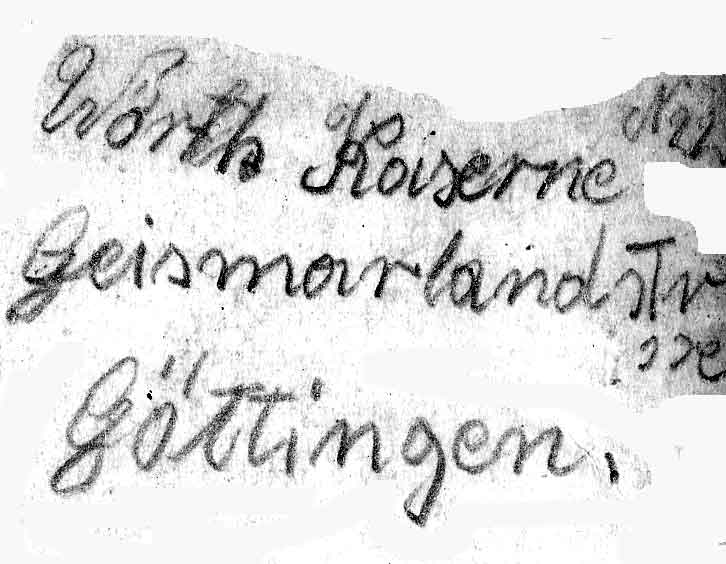 Wörth Kaserne
Geismarlandstr
Göttingen.